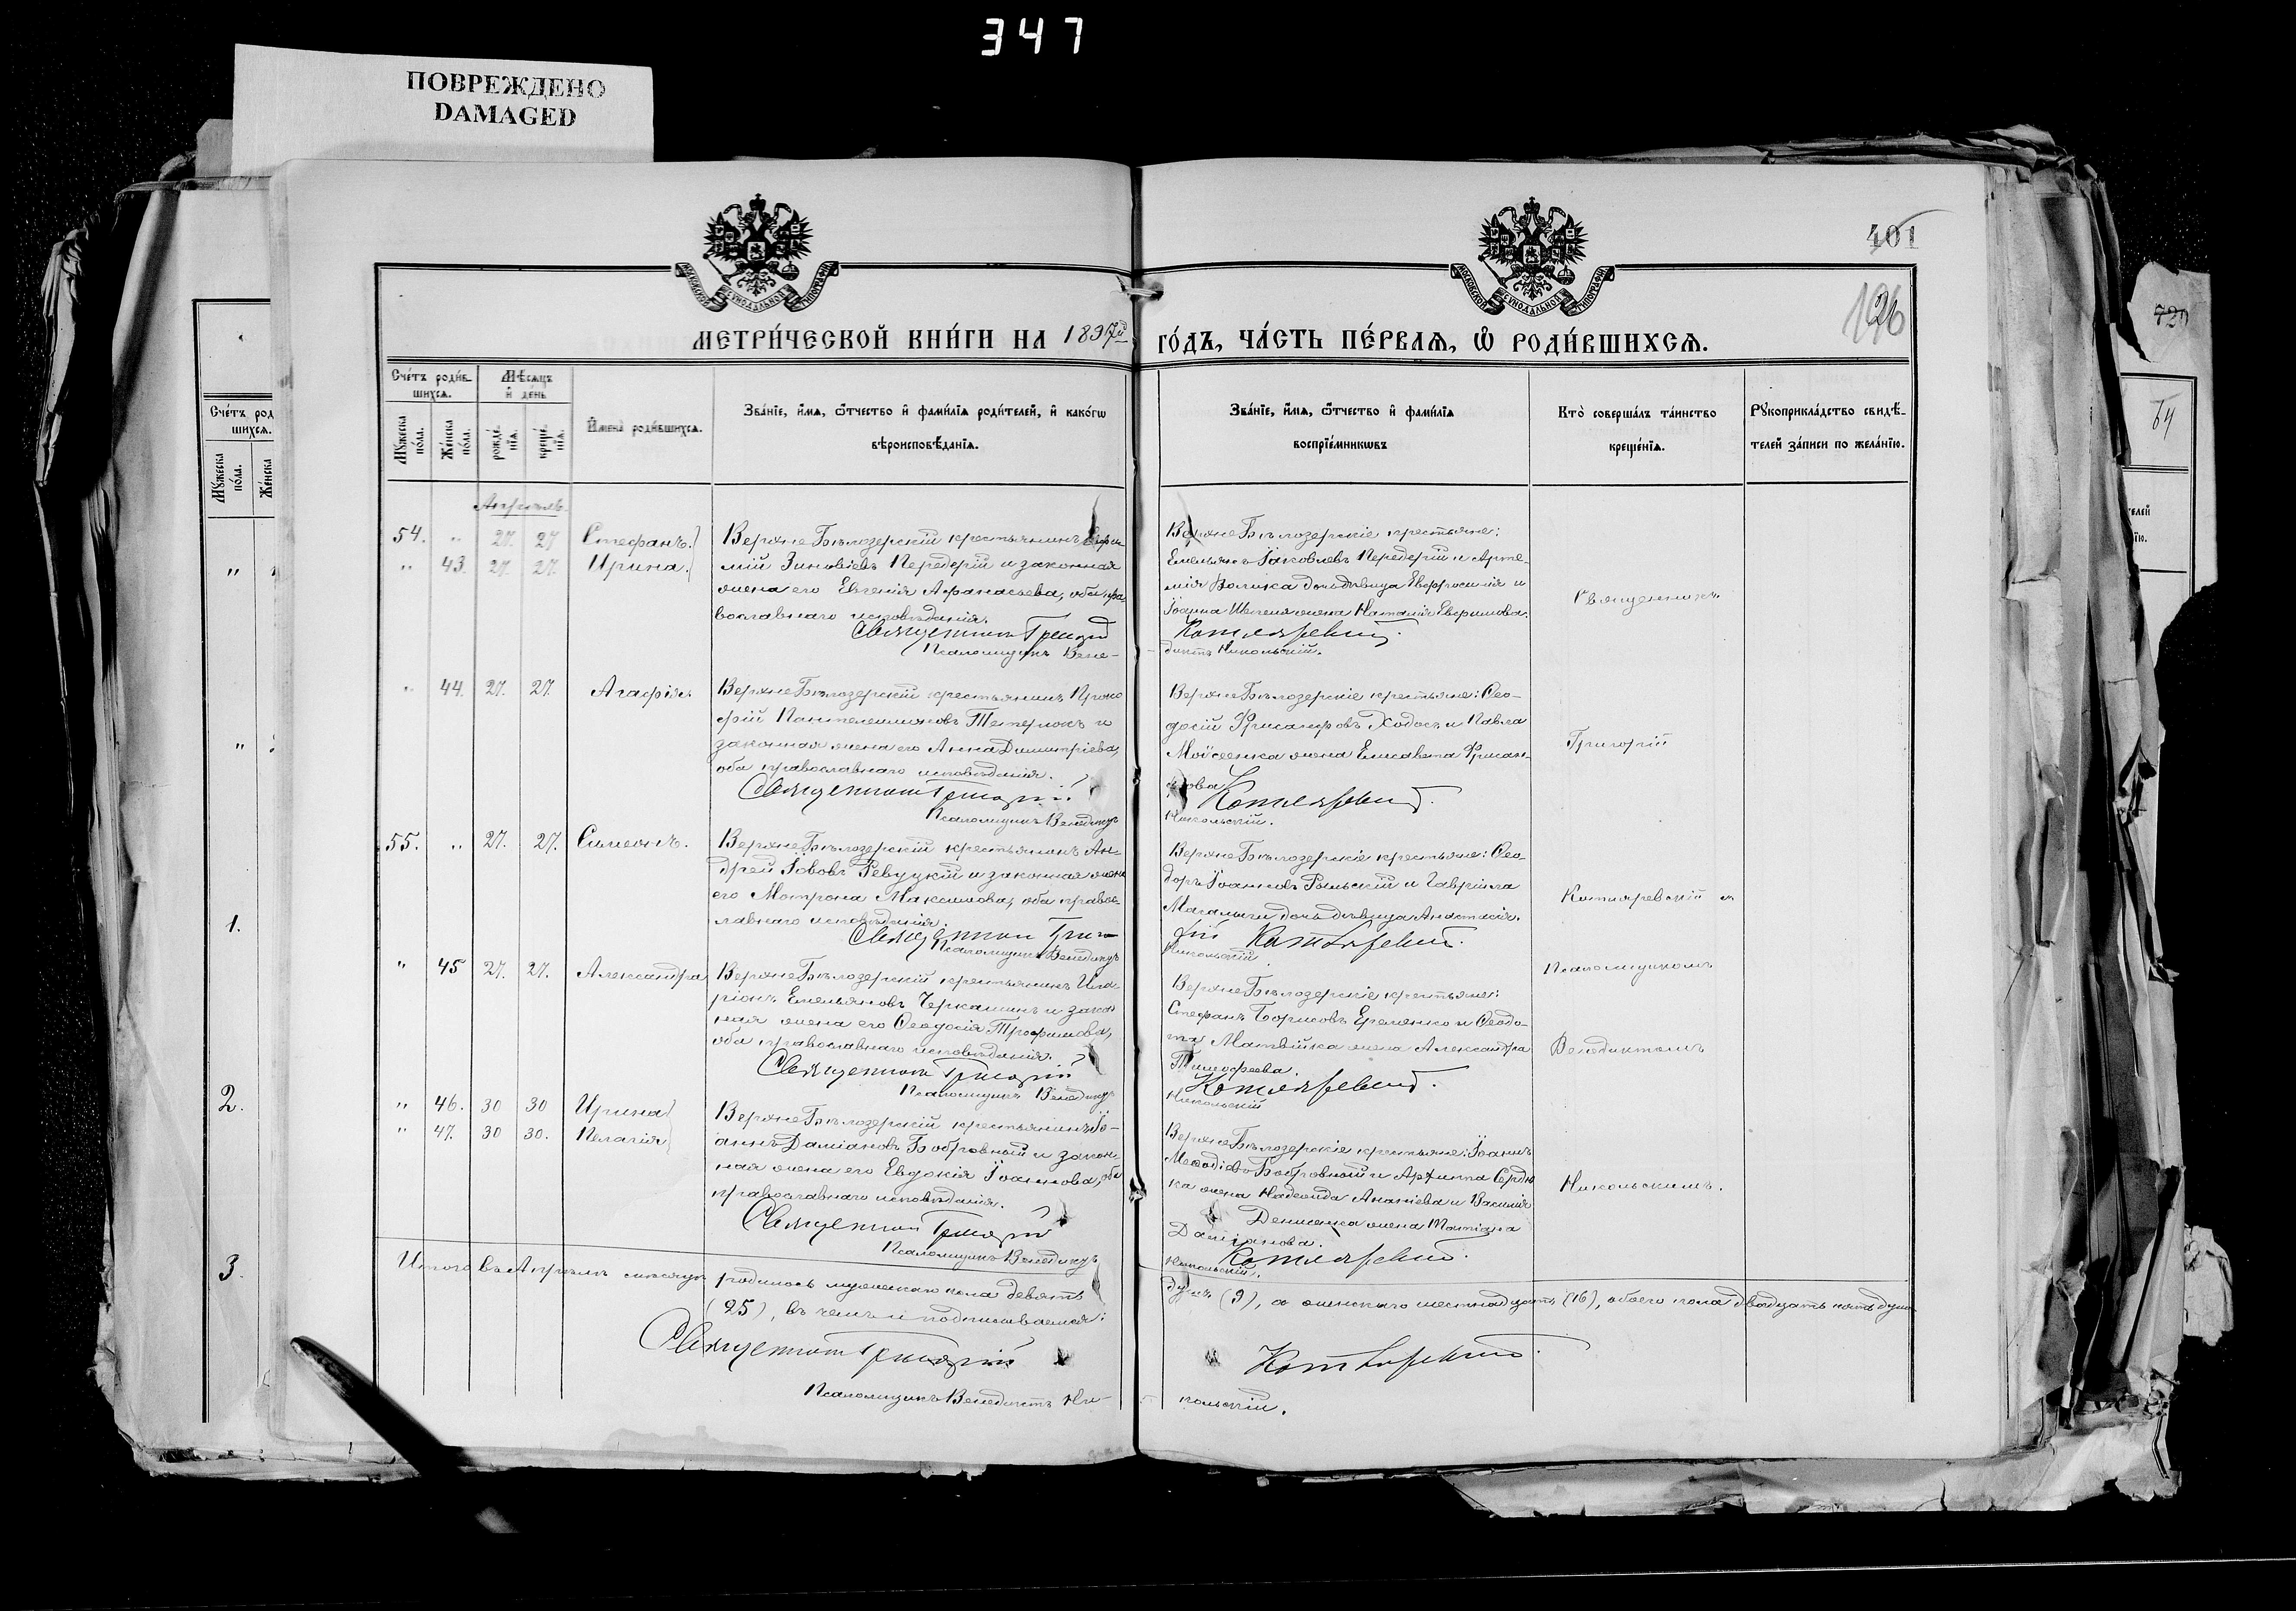 347
ПОВРЕЖДЕНО
DAMAGED
401
126
МЕТРИ́ЧЕСКОЙ КНИ́ГИ НА 1897й ГО́ДЪ, ЧА́СТЬ ПЕ́РВАѦ, Ѡ҆ РОДИ́ВШИХСѦ.
Сче́тъ роди́в-
шихсѧ.
Мѣ́сѧцъ
и҆ де́нь
Мꙋ́жеска по́ла.
Же́нска по́ла.
рожде́нїѧ.
креще́нїѧ.
И҆мена̀ роди́вшихсѧ.
Зва́нїе, и҆́мѧ, ѻ҆́тчество и҆ фами́лїѧ роди́телей, и҆ како́гѡ
вѣроисповѣ́данїѧ.
Зва́нїе, и҆́мѧ, ѻ҆́тчество и҆ фами́лїѧ
воспрїе́мникѡвъ
Кто̀ соверша́лъ та́инство
креще́нїѧ.
Рꙋкоприкла́дство свидѣ́-
телей за́писи по жела́нїю.
Апрѣль.
54. " 27. 27 Стефанъ.
" 43. 27. 27. Ирина.
Верхне Бѣлозерскій крестьянинъ Евфи-
мій Зиновіевъ Передерій и законная
жена его Евгенія Афанасьева, оба пра-
вославнаго исповѣданія.
Священникъ Григорій
Псаломщикъ Вене-
Верхне Бѣлозерскіе крестьяне:
Емельянъ Іаковлевъ Передерій и Арте-
мія Волика дочь дѣвица Евфросинія и
Іоанна жена Наталія Евфимова.
Котляревскій.
диктъ Никольскій.
" 44. 27. 27. Агафія.
Верхне Бѣлозерскій крестьянинъ Проко-
фій Пантелеимоновъ Тетерюкъ и
законная жена его Анна Димитріева,
оба православнаго исповѣданія.
Священникъ Григорій
Псаломщикъ Венедиктъ
Верхне Бѣлозерскіе крестьяне: Ѳео-
досій Хрисанфовъ Ходосъ и Павла
Моисеенка жена Елисавета Хрисан-
фова
Котляревскій.
Никольскій.
55. " 27. 27. Симеонъ.
Верхне Бѣлозерскій крестьянинъ Ан-
дрей Іововъ Ревуцкій и законная жена
его Мотрона Максимова, оба правос-
лавнаго исповѣданія.
Священникъ Григо-
Псаломщикъ Венедиктъ
Верхне Бѣлозерскіе крестьяне: Ѳео-
доръ Іоанновъ Рыльскій и Гавріила
Маламыги дочь дѣвица Анастасія.
рій Котляревскій.
Никольскій
" 45 27. 27. Александра
Верхне Бѣлозерскій крестьянинъ Ила-
ріонъ Емельяновъ Черкашинъ и закон-
ная жена его Ѳеодосія Трофимова,
оба православнаго исповѣданія.
Священникъ Григорій
Псаломщикъ Венедиктъ
Верхне Бѣлозерскіе крестьяне:
Стефанъ Борисовъ Еременко и Ѳеодо-
та Матвійка жена Александра
Тимофеева.
Котляревскій.
Никольскій
" 46. 30 30 Ирина
" 47. 30 30. Пелагія
Верхне Бѣлозерскій крестьянинъ Іо-
аннъ Даміановъ Бобровный и закон-
ная жена его Евдокія Іоаннова, оба
православнаго исповѣданія.
Священникъ Григорій
Псаломщикъ Венедиктъ
Верхне Бѣлозерскіе крестьяне: Іоаннъ
Меѳодіевъ Бобровный и Архипа Сердю-
ка жена Надежда Ананіева и Василія
Денисенка жена Татіана
Даміанова.
Котляревскій.
Никольскій.
Священникъ
Григорій
Котляревскій съ
Псаломщикомъ
Венедиктомъ
Никольскимъ.
Итого въ Апрѣлѣ мѣсяцѣ родилось мужескаго пола девять
душъ (9), а женскаго шестнадцать (16), обоего пола двадцать пять душъ
(25), въ чемъ и подписываемся:
Священникъ Григорій Котляревскій.
Псаломщикъ Венедиктъ Ни-
кольскій.
Сче́тъ род
шихсѧ.
Мꙋ́жеска по́ла.
Же́нска
"
"
1.
2.
3.
729
64
телей